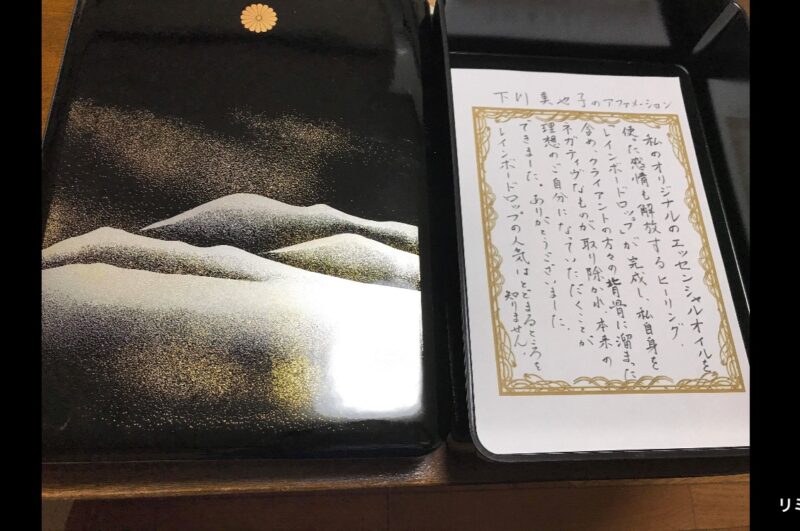 下川美也子のアファメーション
私のオリジナルのエッセンシャルオイルを
使った感情も解放するヒーリング、
「レインボードロップ」が完成し、私自身を
含め、クライアントの方々の背骨に溜まった
ネガティヴなものが取り除かれ、本来の
理想のご自分になっていただくことが
できました。ありがとうございました。
レインボードロップの人気はとどまるところを
知りません。
リミ